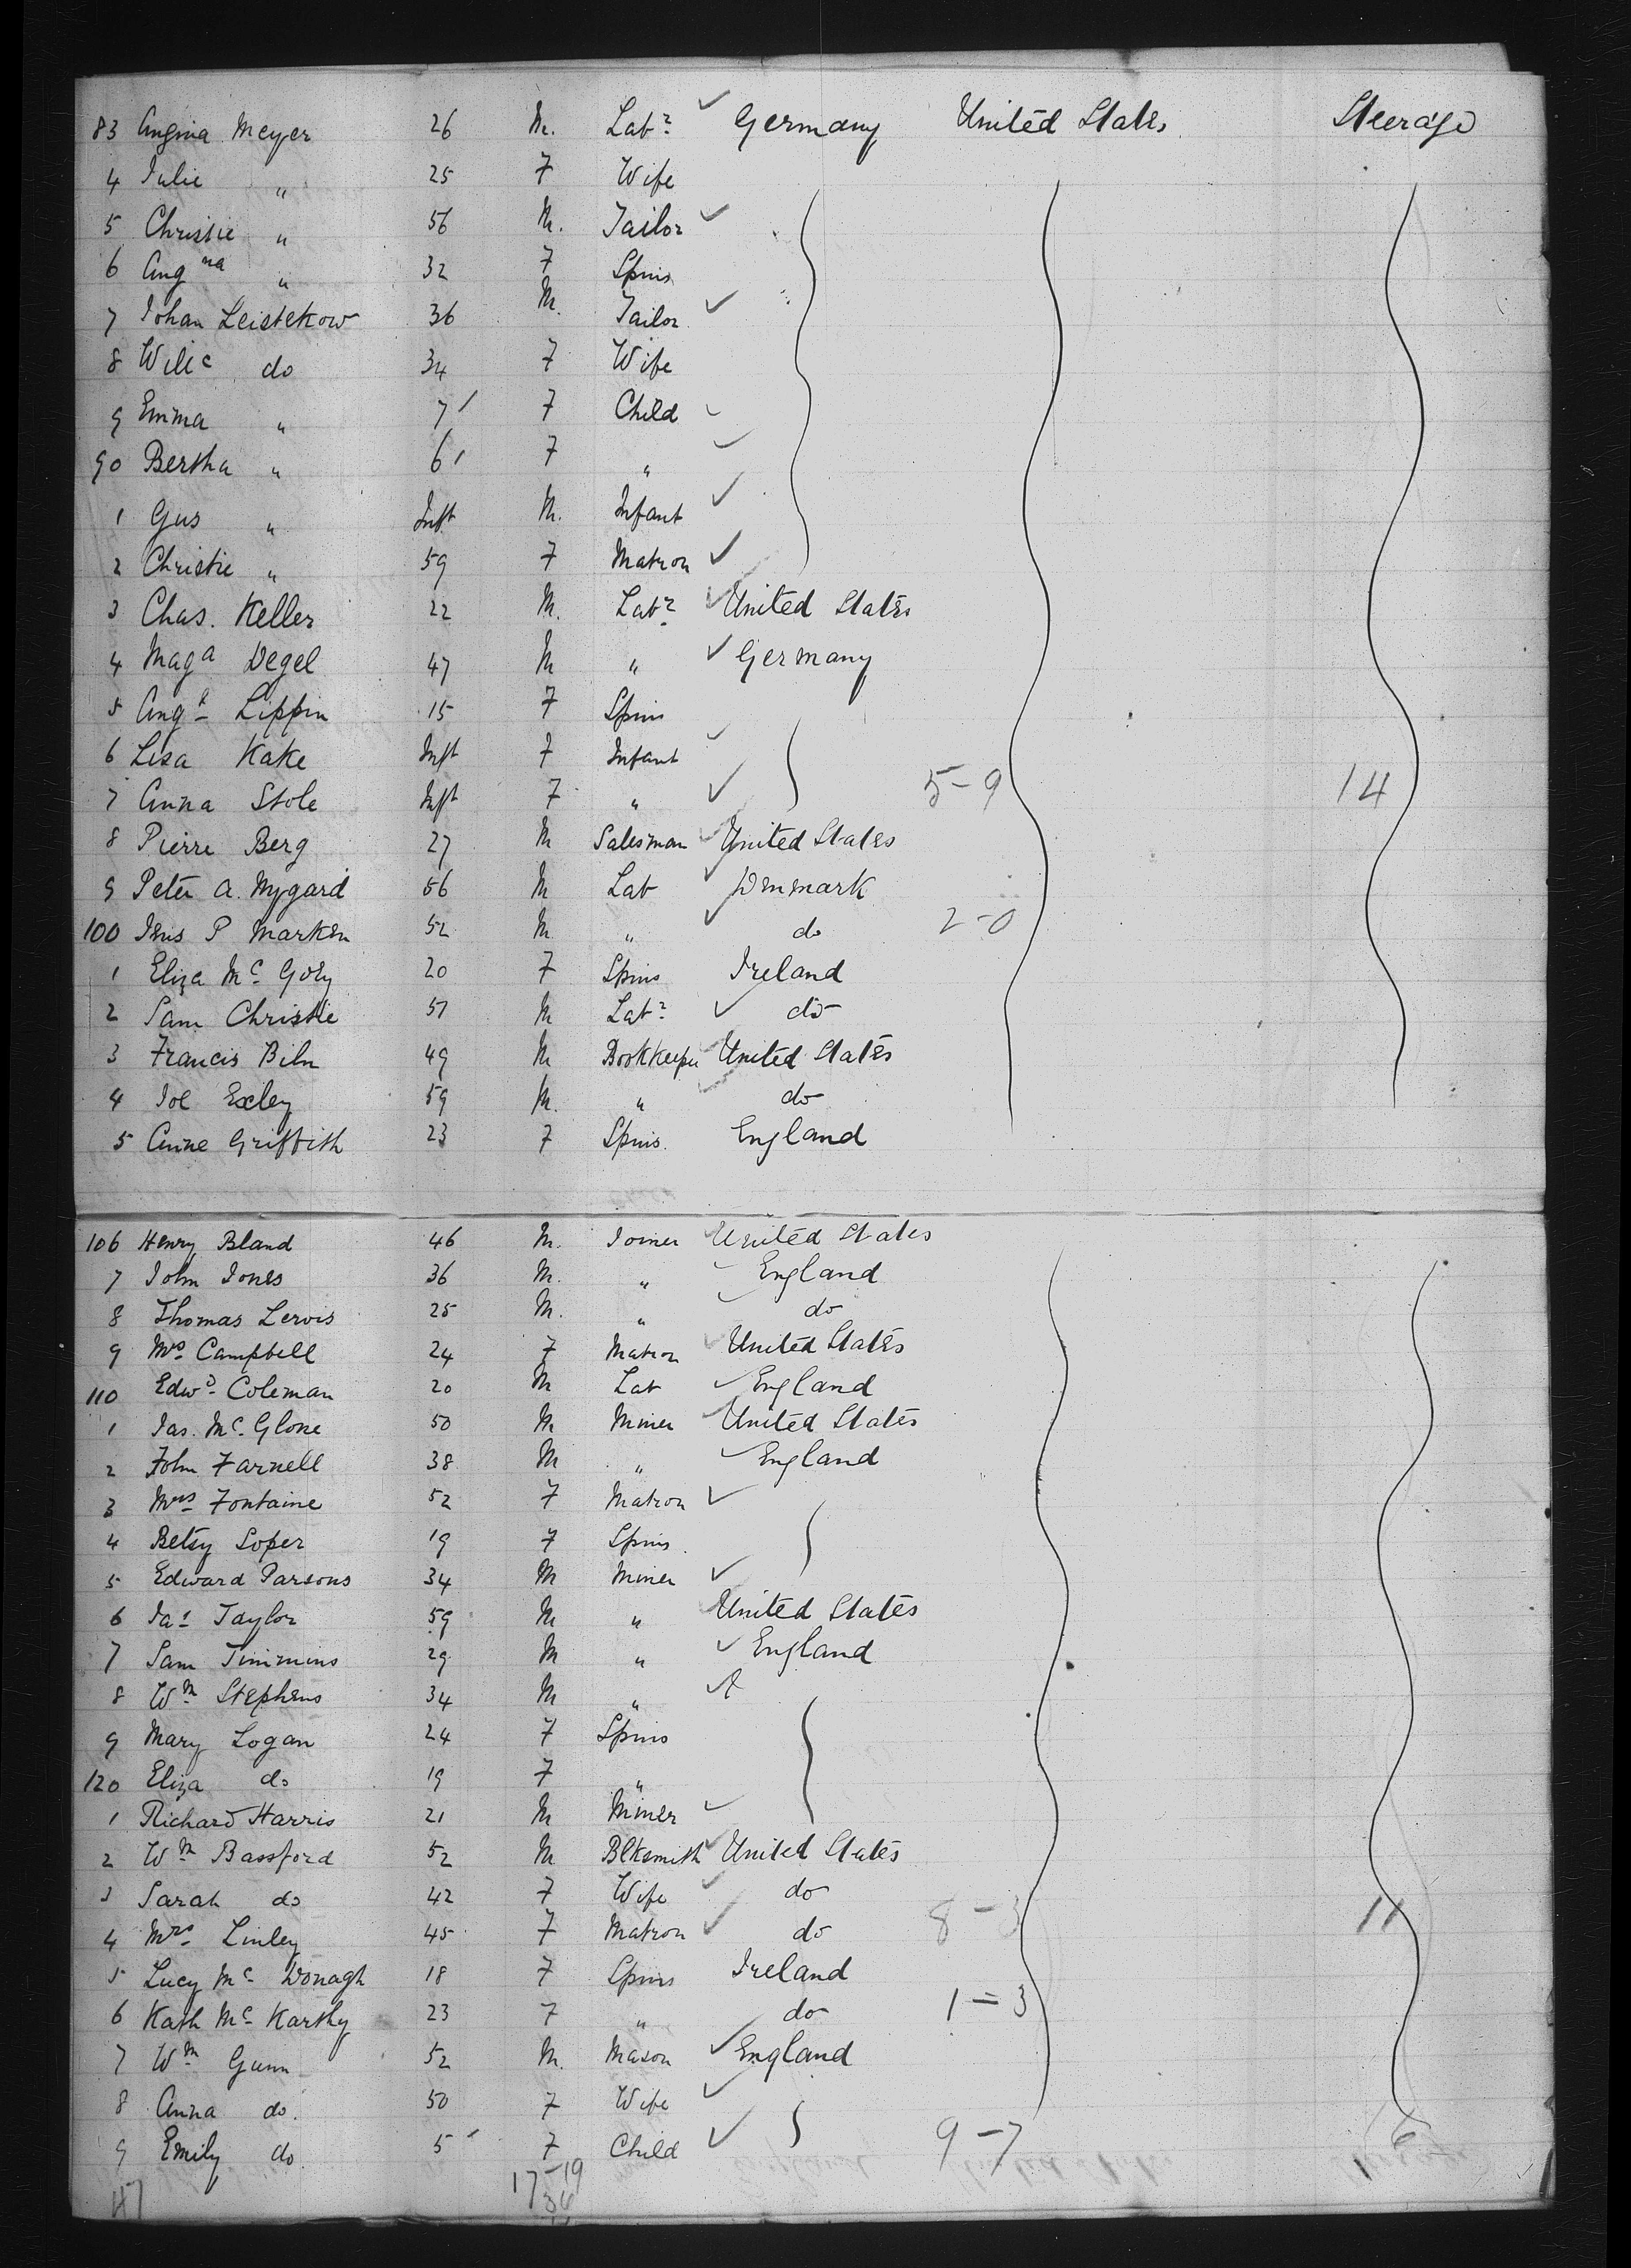 83 Angina Meyer 26 M. Labr Germany United States Steerage
4 Julie " 25 F Wife
5 Christie " 56 M. Tailor
6 Angna " 32 F Spins
7 Johan Leistekow 36 M. Tailor
8 Wilc do 34 F Wife
9 Emma " 7 F Child
90 Bertha " 6 F "
1 Gus " Inft M. Infant
2 Christie " 59 F Matron
3 Chas. Keller 22 M. Labr United States
4 Maga Degel 47 M " Germany
5 Ang Lippin 15 F Spins
6 Lisa Kake Inft F Infant
7 Anna Stole Inft F " 5-9 14
8 Pierre Berg 27 M Salesman United States
9 Peter A. Nygard 56 M Lab Denmark
100 Jens P Marken 52 M " do 2-0
1 Eliza Mc Goey 20 F Spins Ireland
2 Sam Christie 51 M Labr do
3 Francis Biln 49 M Bookkeeper United States
4 Joe Exley 59 M. " do
5 Anne Griffith 23 F Spins. England
106 Henry Bland 46 M. Joiner United States
7 John Jones 36 M. " England
8 Thomas Lervis 25 M. " do
9 Mrs Campbell 24 F Matron United States
110 Edwd Coleman 20 M Lab England
1 Jas. Mc Glone 50 M Miner United States
2 John Farnell 38 M " England
3 Mrs Fontaine 52 F Matron
4 Betsy Soper 19 F Spins
5 Edward Parsons 34 M Miner
6 Jas Taylor 59 M " United States
7 Sam Timmins 29 M " England
8 Wm Stephens 34 M "
9 Mary Logan 24 F Spins
120 Eliza do 19 F "
1 Richard Harris 21 M Miner
2 Wm Bassford 52 M Blksmith United States
3 Sarah do 42 F Wife do
4 Mrs Linley 45 F Matron do 8-3 11
5 Lucy Mc Donagh 18 F Spins Ireland
6 Kath Mc Karthy 23 F " do 1-3
7 Wm Gunn 52 M. Mason England
8 Anna do. 50 F Wife
9 Emily do 5 F Child 9-7
47 17-19
36